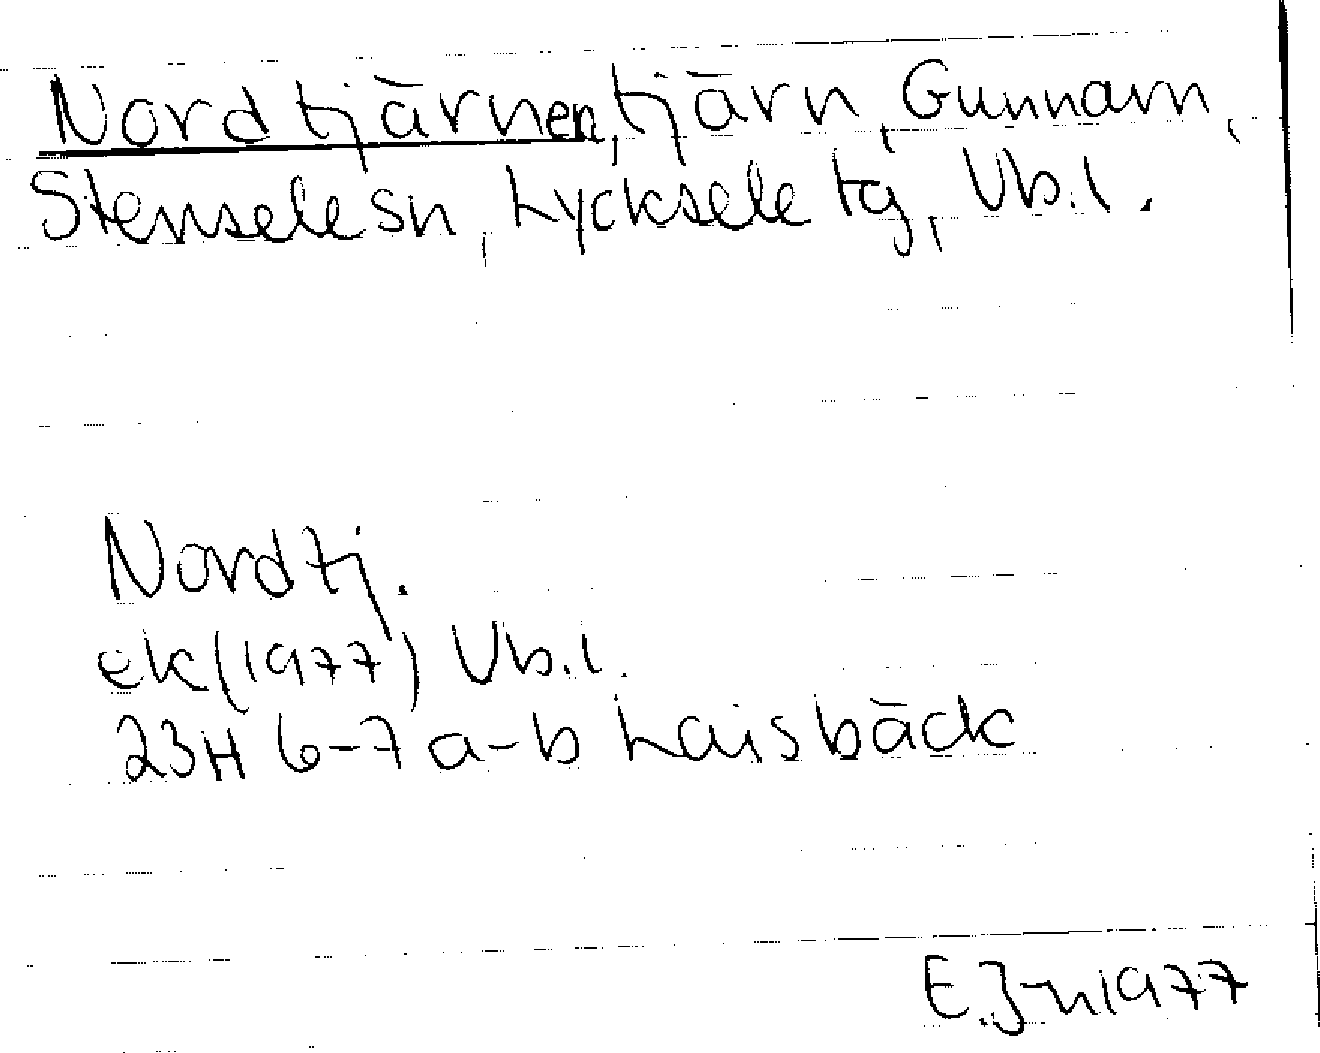 Nordtjärnen, tjärn, Gunnarn,
Stensele sn, Lycksele tg, Vb.l.
Nordtj.
ek (1977) Vb.l.
23H 6-7 a-b Laisbäck
E.J-n 1977